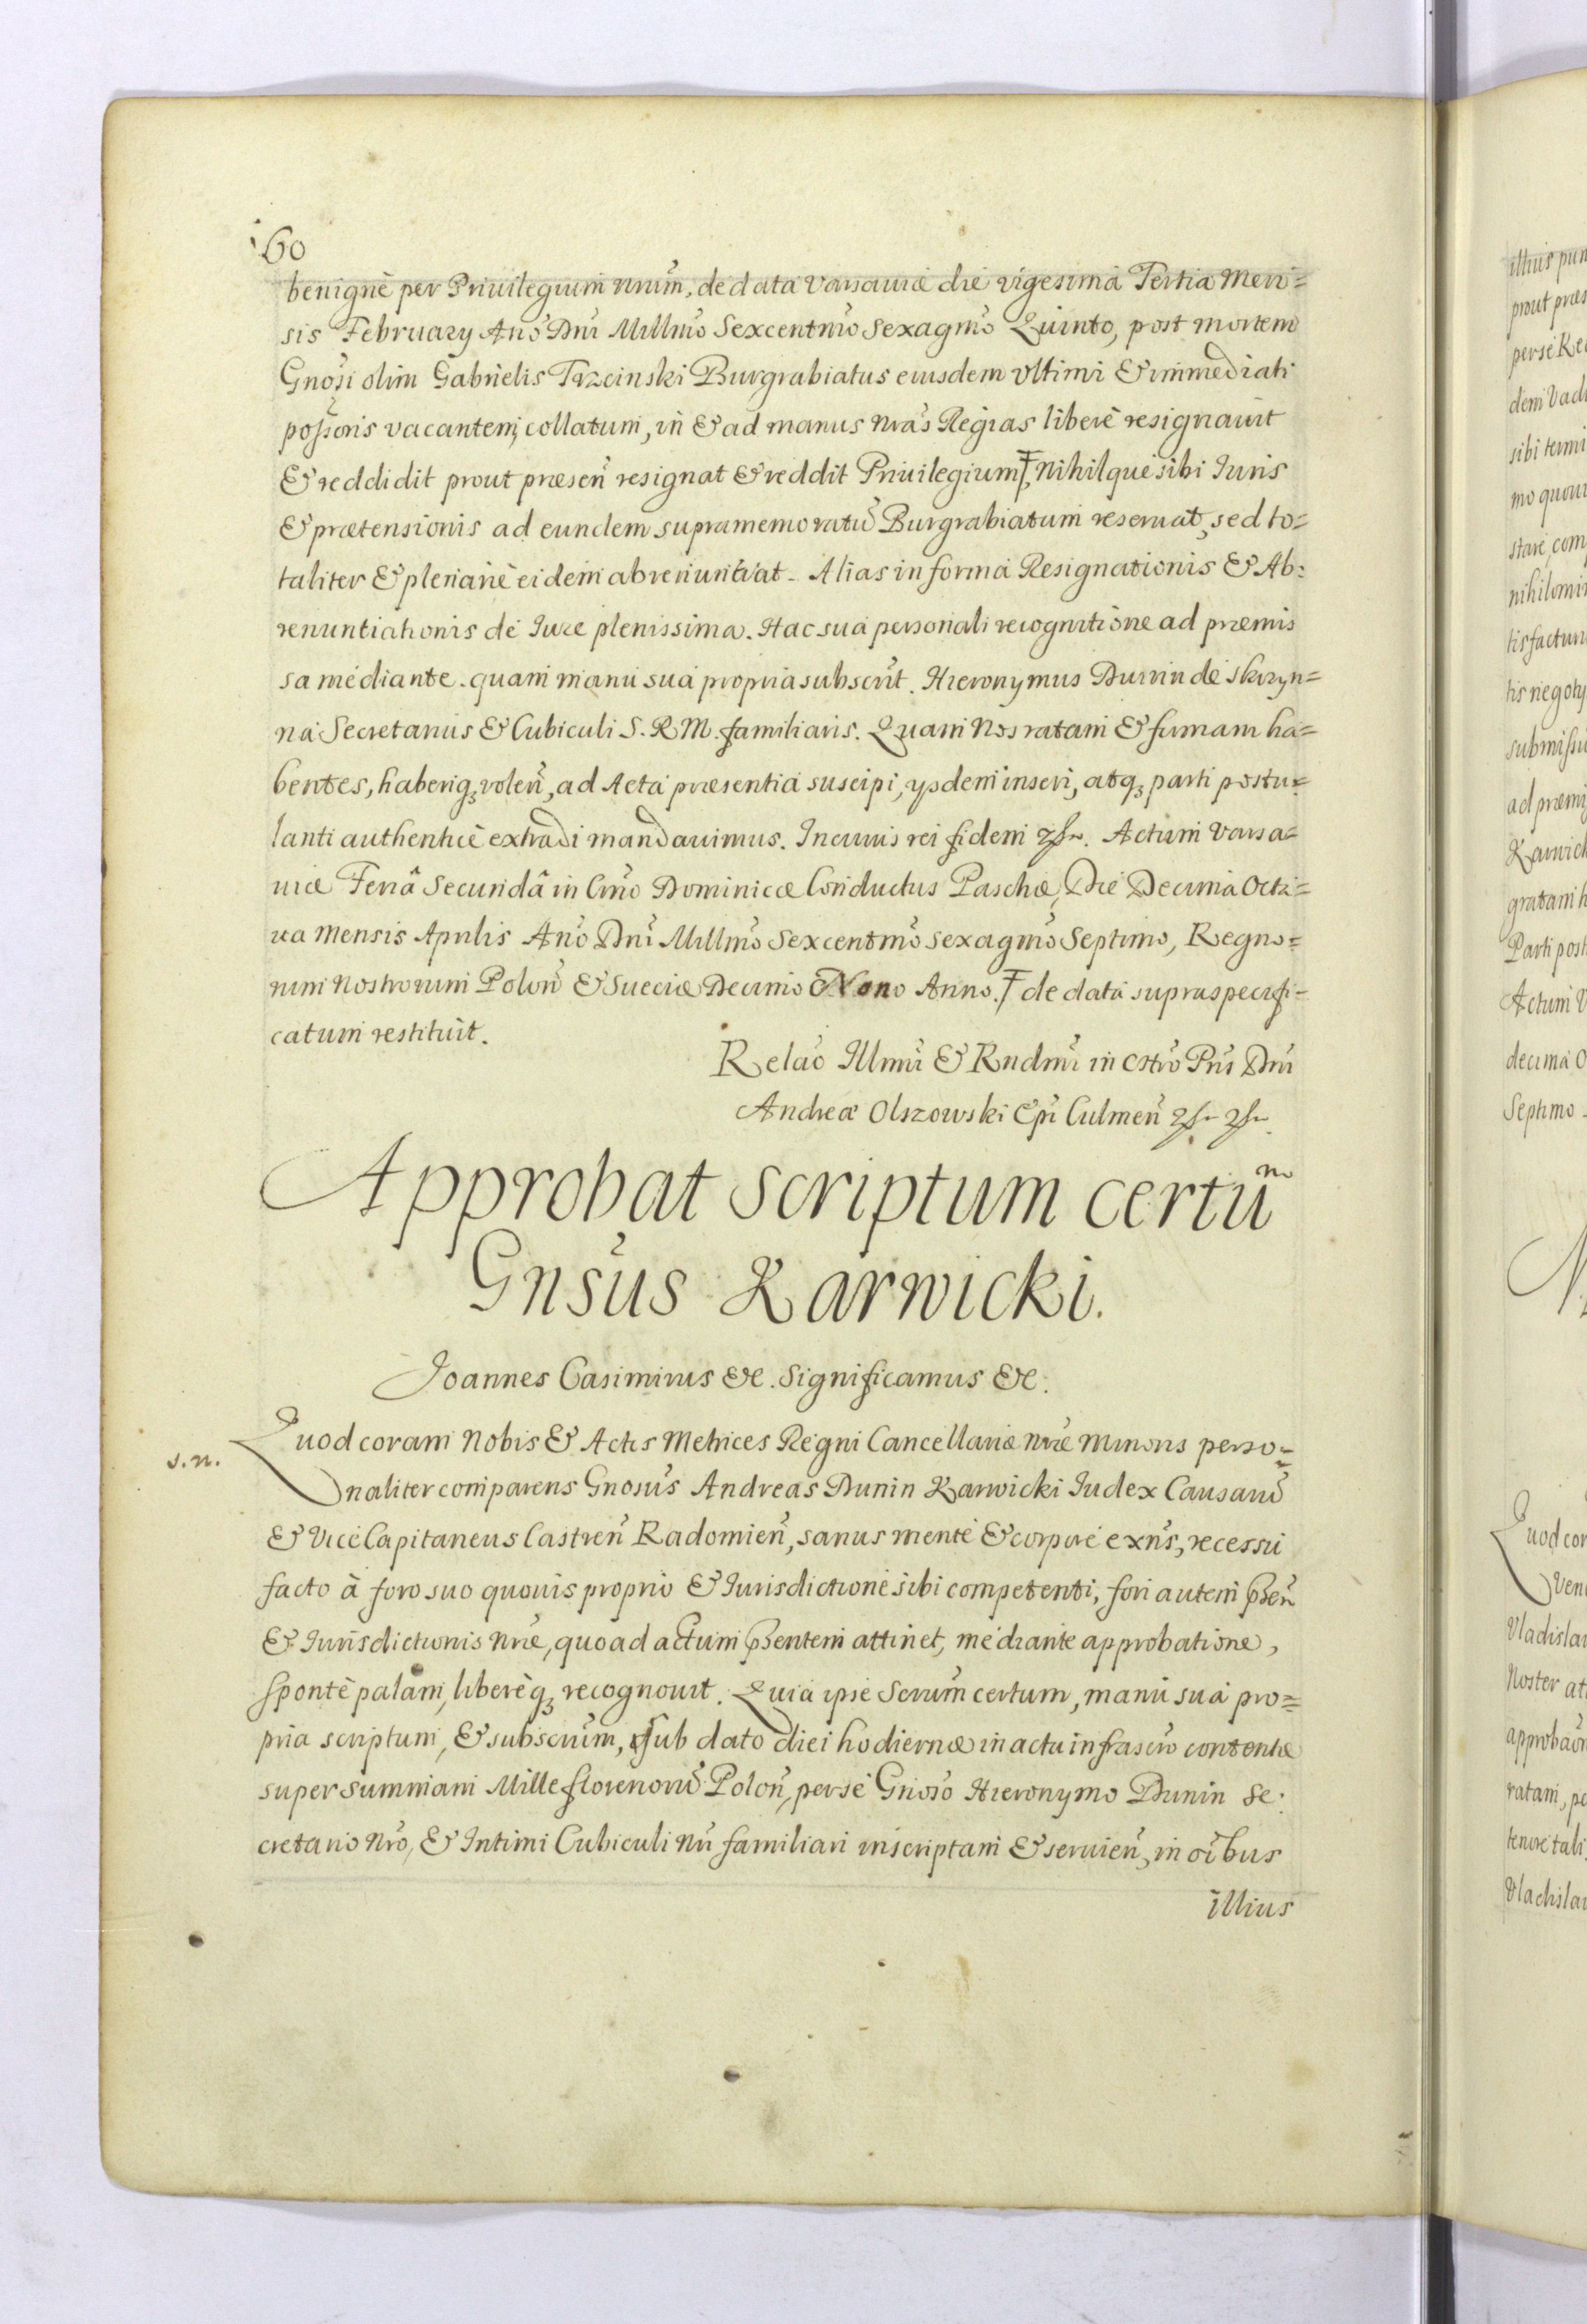 160
benignè per Priuilegium nrũm, de data Varsauiæ die vigesima Tertia Men=
sis February Ano Dni Millmo Sexcentmo Sexagmo Quinto, post mortem
Gnosi olim Gabrielis Trzcinski Burgrabiatus eiusdem Vltimi & immediati
possoris vacantem, collatum, in & ad manus nras Regias liberè resignauit
& reddidit prout præsen resignat & reddit Priuilegium Ŧ, Nihilque sibi Iuris
& prætensionis ad eundem supramemoratũ Burgrabiatum reseruat, sed to=
taliter & plenariè eidem abrenuntiat. Alias in forma Resignationis & Ab=
renuntiationis de Iure plenissima. Hac sua personali recognitione ad præmis
sa mediante. quam manu sua propria subscrit. Hieronymus Dunin de Skrzyn=
na Secretarius & Cubiculi S. R M. familiaris. Quam Nos ratam & firmam ha=
bentes, haberiq; volen, ad Acta præsentia suscipi, ysdem inseri, atq; parti postu=
lanti authenticè extradi mandauimus. In cuius rei fidem &c. Actum Varsa=
uiæ Feriâ Secundâ in Cmo Dominicæ Conductus Paschæ, Die Decima Octa=
ua Mensis Aprilis Ano Dni Millmo Sexcentmo Sexagmo Septimo, Regno=
rum Nostrorum Polon & Sueciæ Decimo Nono Anno. Ŧ de data supraspecifi=
catum restituit.
Relao Illmi & Rndmi in Chro Pris Dni
Andreæ Olszowski Epi Culmen &c &c.
Approbat scriptum certũm
Gnsus Karwicki.
Joannes Casimirus &c. Significamus &c.
s. n.
Quod coram Nobis & Actis Metrices Regni Cancellariæ nræ Minoris perso=
naliter comparens Gnosus Andreas Dunin Karwicki Iudex Causarũ
& Vice Capitaneus Castren Radomien, sanus mente & corpore exns, recessu
facto à foro suo quouis proprio & Iurisdictione sibi competenti, fori autem pSen
& Iurisdictionis nræ, quoad actum pSentem attinet, mediante approbatione,
spontè palam, liberèq; recognouit. Quia ipse Scrium certum, manu sua pro=
pria scriptum, & subscrium, sub dato diei hodiernæ in actu infrascro contentæ
super summam Mille florenorũ Polon, per se Gnoso Hieronymo Dunin Se:
cretario Nro, & Intimi Cubiculi Nri familiari inscriptam & seruien, in oibus
illius